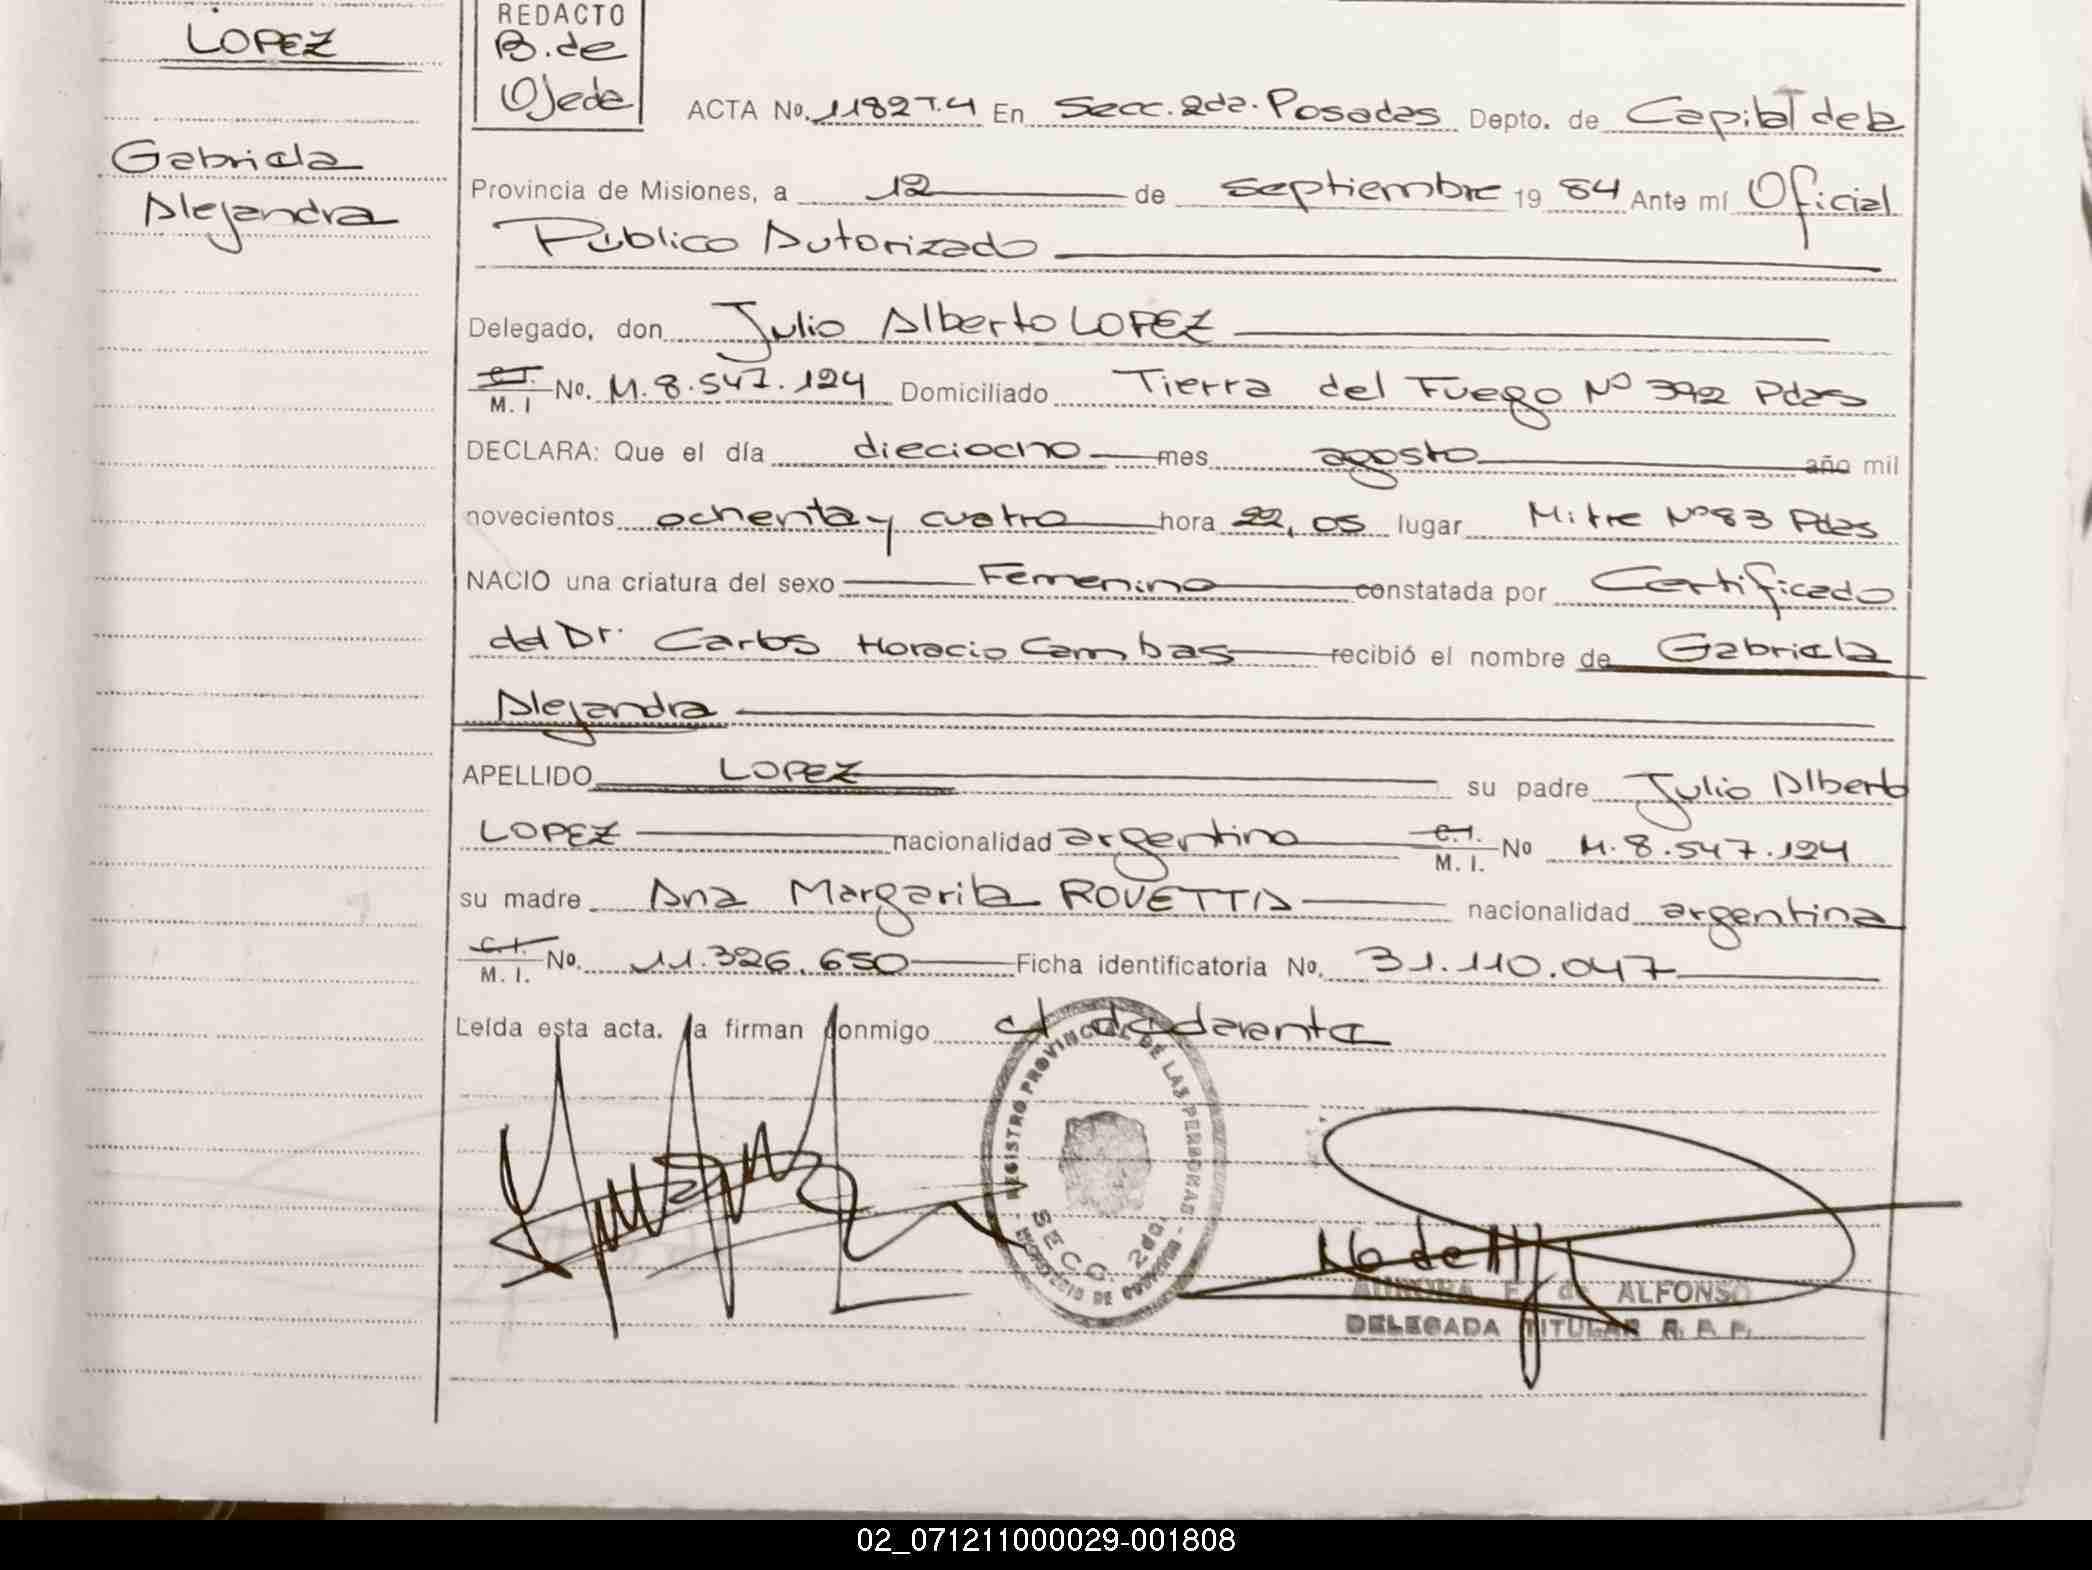 LOPEZ
Gabriela
Alejandra
REDACTO
B. de
Ojeda
ACTA No. 1182T.4 En Secc. 2da. Posadas Depto. de Capital de la
Provincia de Misiones, a 12 de septiembre 19 84 Ante mí Oficial
Público Autorizado
Delegado, don Julio Alberto LOPEZ
C.I. M. I No. M. 8.547.124 Domiciliado Tierra del Fuego Nº 392 Pdas
DECLARA: Que el día dieciocho mes agosto año mil
novecientos ochenta y cuatro hora 22,05 lugar Mitre Nº 83 Pdas
NACIO una criatura del sexo Femenino constatada por Certificado
del Dr. Carlos Horacio Cambas recibió el nombre de Gabriela
Alejandra
APELLIDO LOPEZ su padre Julio Alberto
LOPEZ nacionalidad argentino C.I. M. I. No M. 8.547.124
su madre Ana Margarita ROVETTA nacionalidad argentina
C.I. M. I. No. 11.326.650 Ficha identificatoria No. 31.110.047
Leída esta acta. la firman conmigo el declarante
REGISTRO PROVINCIAL DE LAS PERSONAS
SECC. 2da.
AURORA F. de ALFONSO
DELEGADA TITULAR R. P. P.
02_071211000029-001808